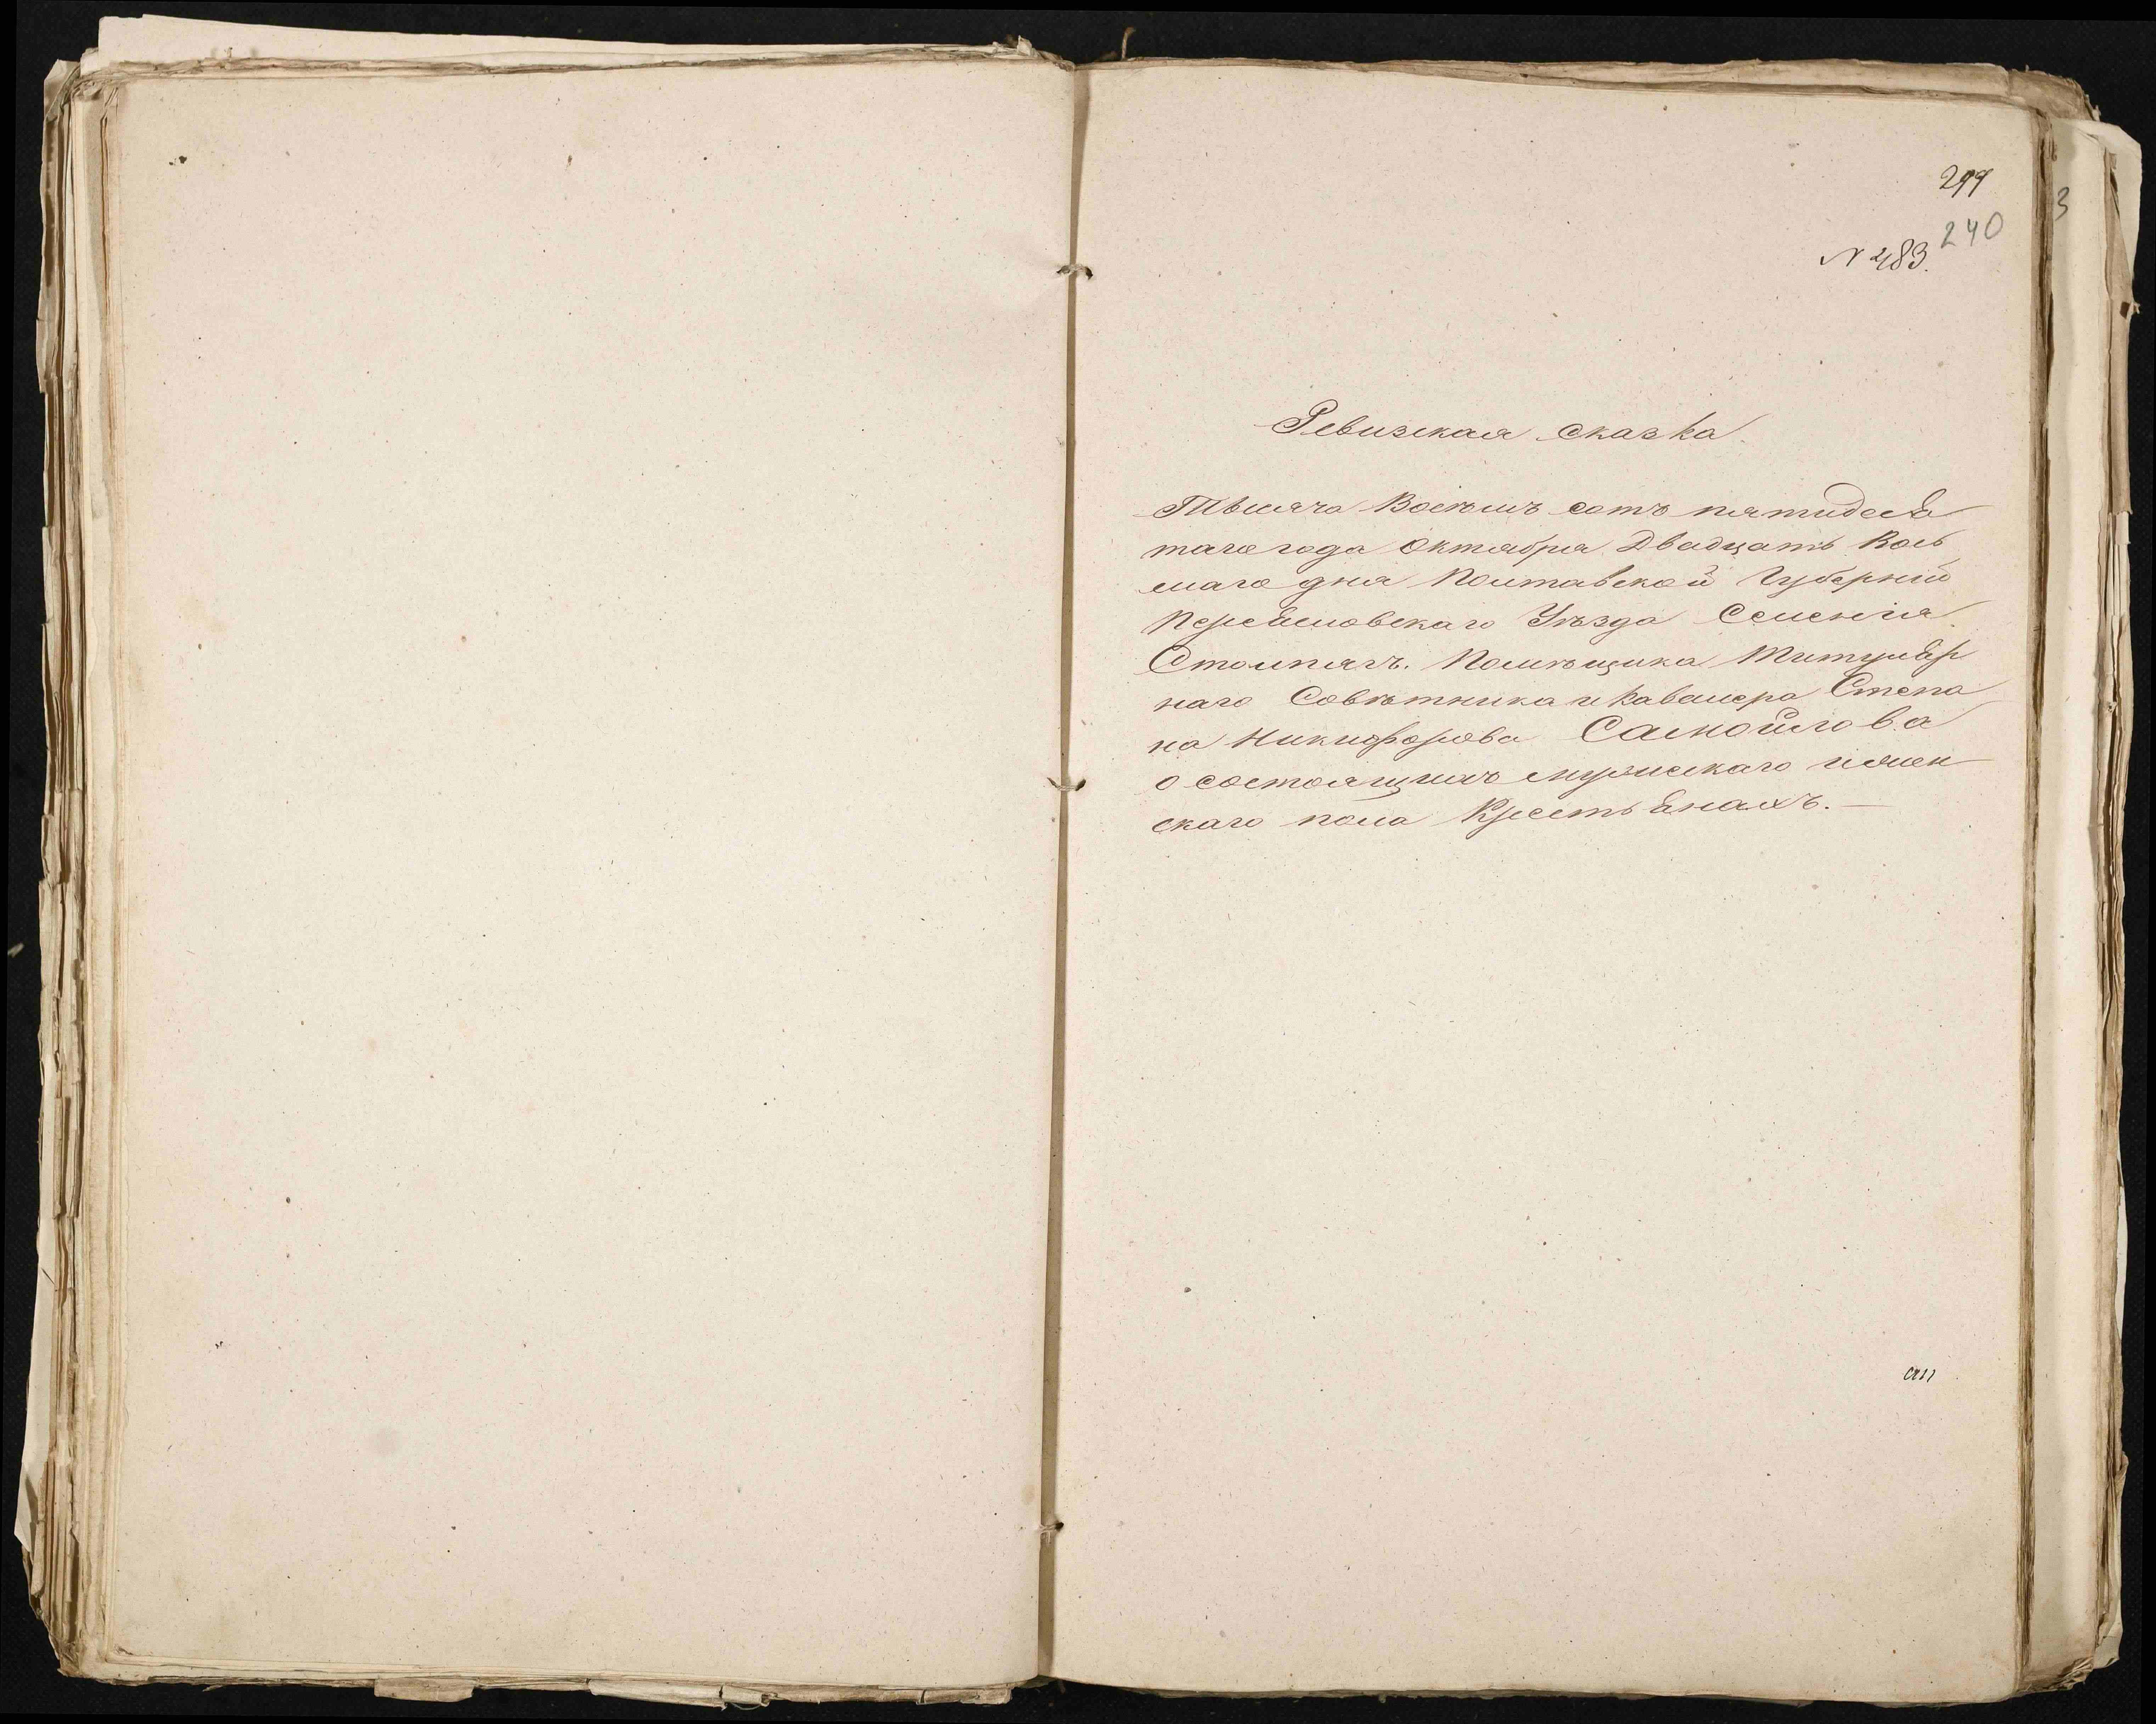 240
N 483.
Ревизская сказка
Тысяча Восемь сотъ пятидеся
таго года Октября Двадцать Вось
маго дня Полтавской Губерніи
Переясловскаго Уѣзда Селенія
Столпягъ. Помѣщика Титуляр
наго Совѣтника и Кавалера Степа
на Никифорова Самойлова
о состоящихъ мужескаго и жен
скаго пола Крестьянахъ.—